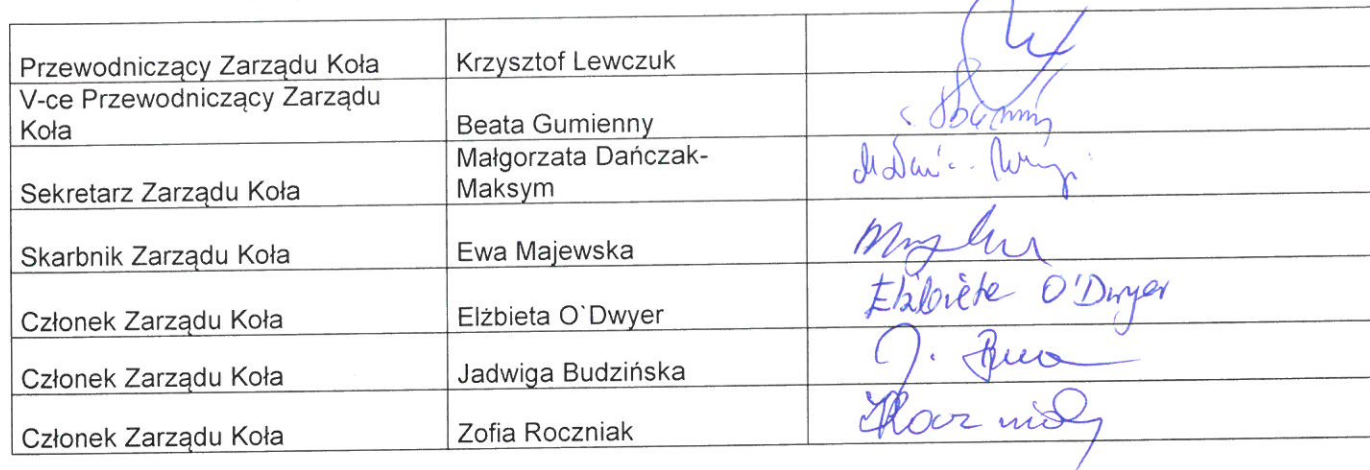 Przewodniczący Zarządu Koła Krzysztof Lewczuk
V-ce Przewodniczący Zarządu
Koła Beata Gumienny
Małgorzata Dańczak-
Sekretarz Zarządu Koła Maksym
Skarbnik Zarządu Koła Ewa Majewska
Członek Zarządu Koła Elżbieta O`Dwyer Elżbieta O'Dwyer
Członek Zarządu Koła Jadwiga Budzińska
Członek Zarządu Koła Zofia Roczniak